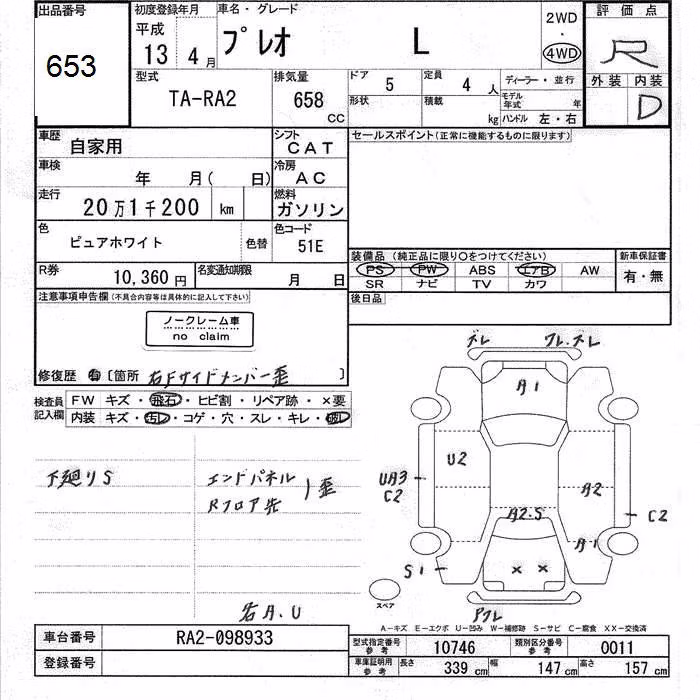 出品番号
653
初度登録年月
平成
13年 4月
車名・グレード
プレオ L
2WD
・
4WD
評価点
R
外装 内装
D
型式
TA-RA2
排気量
658 CC
ドア
5
定員
4 人
ディーラー・並行
形状
積載
kg
モデル年式
年
ハンドル 左・右
車歴
自家用
シフト
CAT
セールスポイント(正常に機能するものに限ります)
車検
年 月(日)
冷房
AC
走行
20万1千200 km
燃料
ガソリン
色
ピュアホワイト
色替
色コード
51E
装備品(純正品に限り○をつけてください)
新車保証書
PS PW ABS エアB AW
有・無
SR ナビ TV カワ
R券
10,360円
名変通知期限
月 日
後日品
注意事項申告欄(不具合内容等は具体的に記入して下さい)
ノークレーム車
no claim
修復歴 有 〔箇所 右Fサイドメンバー歪 〕
検査員記入欄
FW キズ・飛石・ヒビ割・リペア跡・×要
内装 キズ・汚れ・コゲ・穴・スレ・キレ・破れ
下廻りS
エンドパネル
Rフロア先
歪
右A.U
ズレ
ワレ.ズレ
A1
U2
UA3
C2
A2
C2
A2.S
A1
S1
× ×
スペア
A－キズ E－エクボ U－凹み W－補修跡 S－サビ C－腐食 XX－交換済
車台番号
RA2-098933
登録番号
型式指定番号 参考
10746
類別区分番号 参考
0011
車庫証明用 参考
長さ 339 cm
幅 147 cm
高さ 157 cm